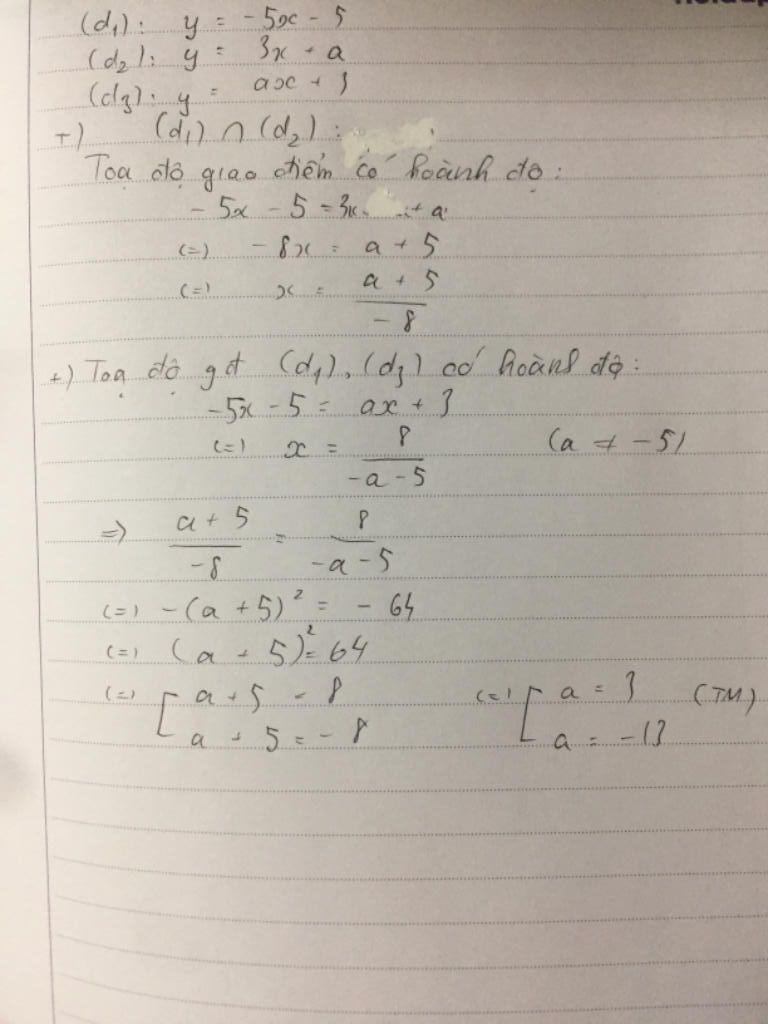 (d₁): y = -5x - 5
(d₂): y = 3x + a
(d3): y = ax + 3
+) (d₁) ∩ (d₂) :
Toạ độ giao điểm có hoành độ:
- 5x - 5 = 3x + a
(=) - 8x = a + 5
(=) x = (a + 5)/(-8)
+) Toạ độ gđ (d₁), (d3) có hoành độ:
-5x - 5 = ax + 3
(=) x = 8/(-a - 5) (a ≠ - 5)
=> (a + 5)/(-8) = 8/(-a - 5)
(=) -(a + 5)² = - 64
(=) (a + 5)² = 64
(=) [ a + 5 = 8 (=) [ a = 3 (TM)
a + 5 = - 8 a = -13